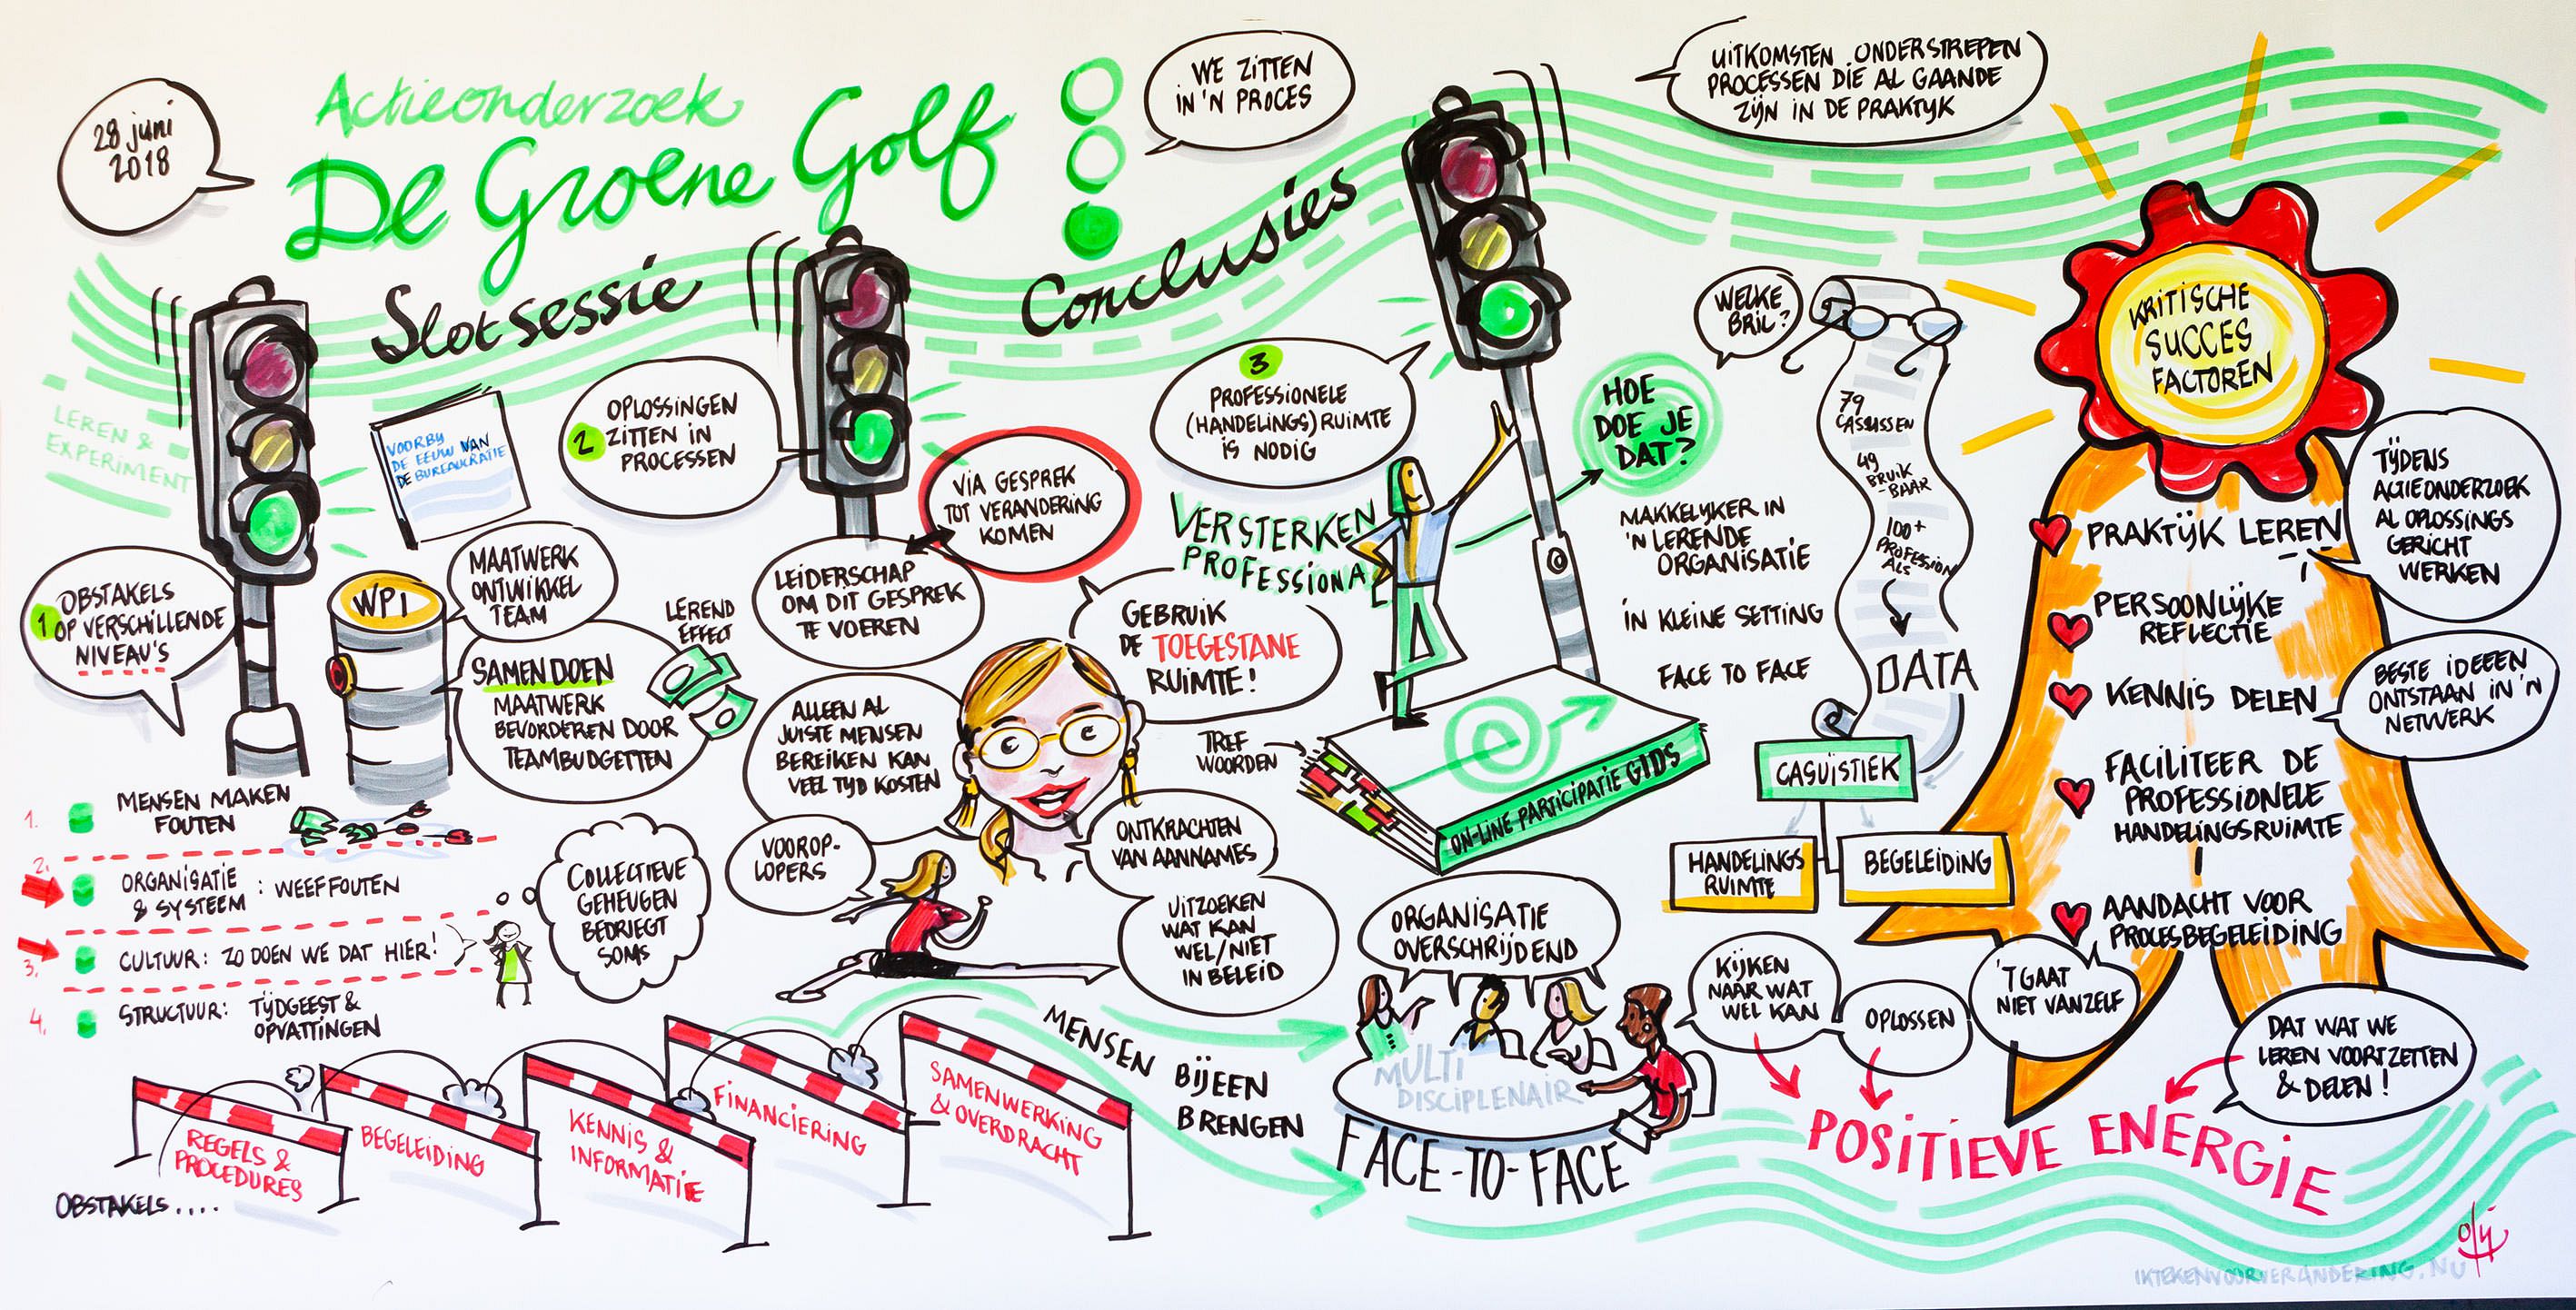 28 juni
2018
Actieonderzoek
De Groene Golf
Slotsessie
Conclusies
WE ZITTEN
IN 'N PROCES
UITKOMSTEN ONDERSTREPEN
PROCESSEN DIE AL GAANDE
ZIJN IN DE PRAKTIJK
LEREN &
EXPERIMENT
VOORBY
DE EEUW VAN
DE BUREAUKRATIE
1 OBSTAKELS
OP VERSCHILLENDE
NIVEAU'S
WPI
MAATWERK
ONTWIKKEL
TEAM
SAMEN DOEN
MAATWERK
BEVORDEREN DOOR
TEAMBUDGETTEN
LEREND
EFFECT
1. MENSEN MAKEN
FOUTEN
2. ORGANISATIE
& SYSTEEM : WEEFFOUTEN
3. CULTUUR: ZO DOEN WE DAT HIER!
4. STRUCTUUR: TIJDGEEST &
OPVATTINGEN
COLLECTIEVE
GEHEUGEN
BEDRIEGT
SOMS
OBSTAKELS....
REGELS &
PROCEDURES
BEGELEIDING
KENNIS &
INFORMATIE
FINANCIERING
SAMENWERKING
& OVERDRACHT
2 OPLOSSINGEN
ZITTEN IN
PROCESSEN
VIA GESPREK
TOT VERANDERING
KOMEN
LEIDERSCHAP
OM DIT GESPREK
TE VOEREN
ALLEEN AL
JUISTE MENSEN
BEREIKEN KAN
VEEL TIJD KOSTEN
VOOROP-
LOPERS
GEBRUIK
DE TOEGESTANE
RUIMTE!
ONTKRACHTEN
VAN AANNAMES
UITZOEKEN
WAT KAN
WEL/NIET
IN BELEID
3
PROFESSIONELE
(HANDELINGS)RUIMTE
IS NODIG
VERSTERKEN
PROFESSIONA
HOE
DOE JE
DAT?
MAKKELIJKER IN
'N LERENDE
ORGANISATIE
IN KLEINE SETTING
FACE TO FACE
TREF
WOORDEN
e
ON-LINE PARTICIPATIE GIDS
MENSEN BIJEEN
BRENGEN
ORGANISATIE
OVERSCHRIJDEND
MULTI
DISCIPLENAIR
FACE-TO-FACE
WELKE
BRIL?
79
CASUSSEN
49
BRUIK
-BAAR
100+
PROFESSION
ALS
DATA
CASUÏSTIEK
HANDELINGS
RUIMTE
BEGELEIDING
KIJKEN
NAAR WAT
WEL KAN
OPLOSSEN
'T GAAT
NIET VANZELF
DAT WAT WE
LEREN VOORTZETTEN
& DELEN!
POSITIEVE ENERGIE
KRITISCHE
SUCCES
FACTOREN
PRAKTIJK LEREN
PERSOONLIJKE
REFLECTIE
KENNIS DELEN
FACILITEER DE
PROFESSIONELE
HANDELINGSRUIMTE
AANDACHT VOOR
PROCESBEGELEIDING
TIJDENS
ACTIEONDERZOEK
AL OPLOSSINGS
GERICHT
WERKEN
BESTE IDEEEN
ONTSTAAN IN 'N
NETWERK
IKTEKENVOORVERANDERING.NU